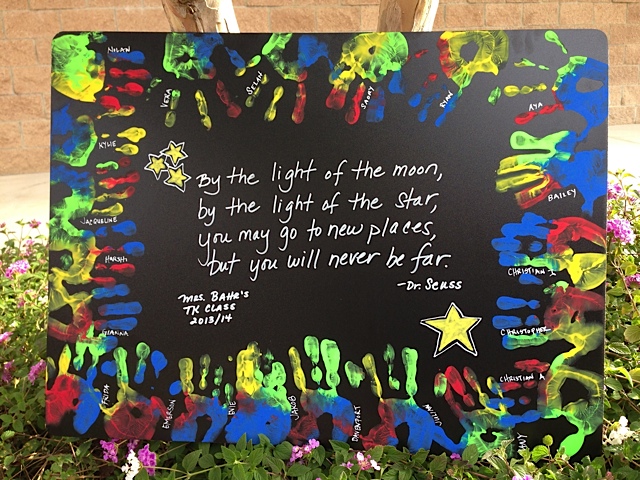 NOLAN
VERA
SELAN
SADRY
RYAN
AYA
KYLIE
BAILEY
JACQUELINE
HARSHI
CHRISTIAN I
GIANNA
CHRISTOPHER
By the light of the moon,
by the light of the star,
you may go to new places,
but you will never be far.
-Dr. Seuss
MRS. BAHR'S
TK CLASS
2013/14
CHRISTIAN A
FRIDA
EMERSON
EVIE
JAKOB
DAVENPORT